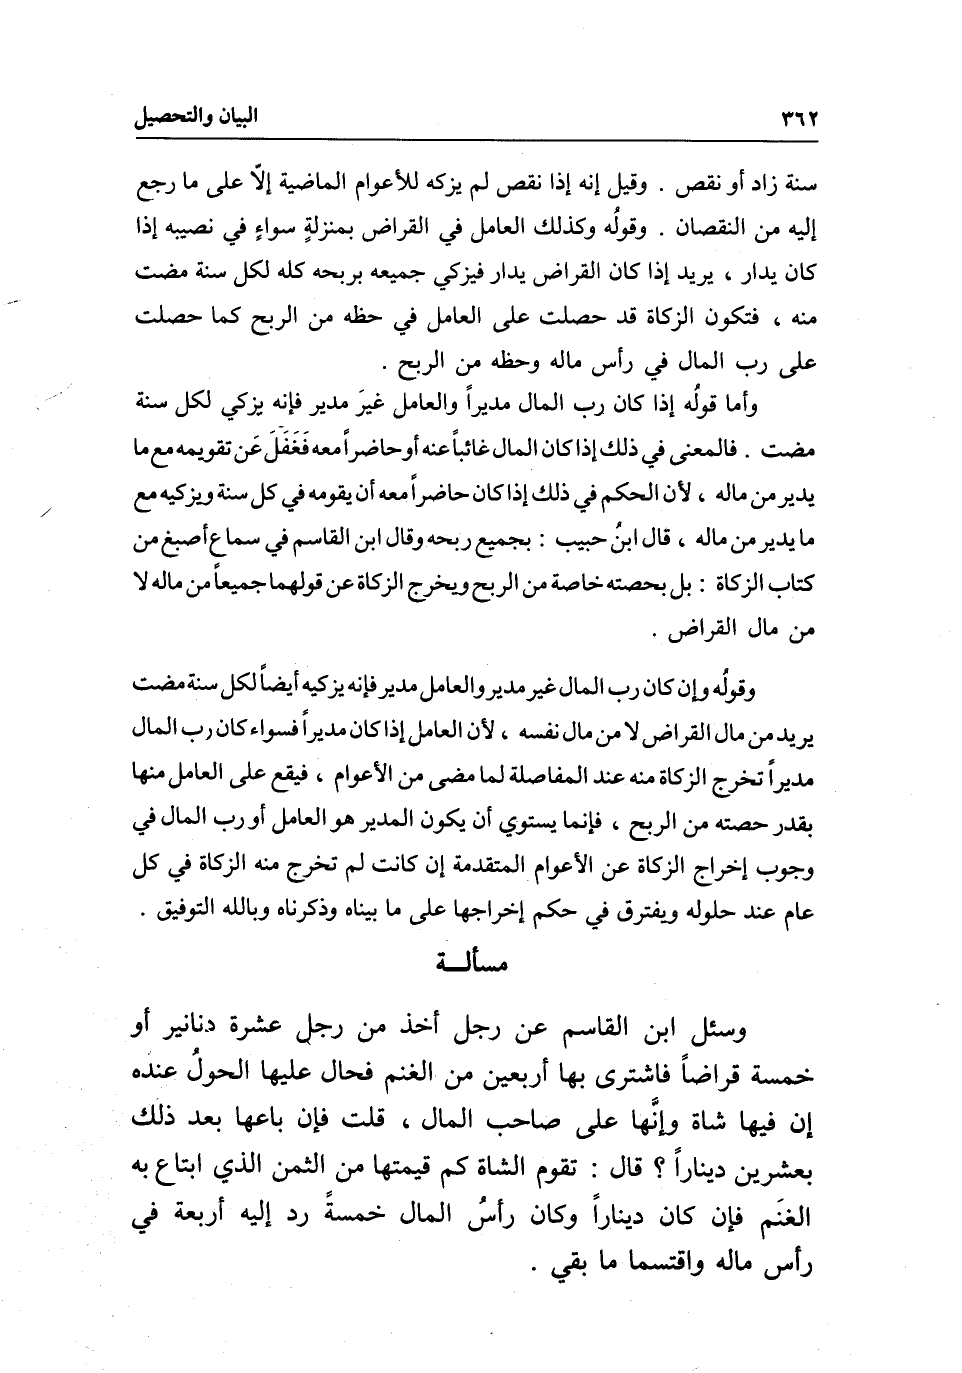 ٣٦٢ البيان والتحصيل
سنة زاد أو نقص . وقيل إنه إذا نقص لم يزكه للأعوام الماضية إلّا على ما رجع
إليه من النقصان . وقولُه وكذلك العامل في القراض بمنزلةٍ سواءٍ في نصيبه إذا
كان يدار ، يريد إذا كان القراض يدار فيزكي جميعه بربحه كله لكل سنة مضت
منه ، فتكون الزكاة قد حصلت على العامل في حظه من الربح كما حصلت
على رب المال في رأس ماله وحظه من الربح .
وأما قولُه إذا كان رب المال مديراً والعامل غيرَ مدير فإنه يزكي لكل سنة
مضت . فالمعنى في ذلك إذا كان المال غائباً عنه أو حاضراً معه فَغَفَلَ عَن تقويمه مع ما
يدير من ماله ، لأن الحكم في ذلك إذا كان حاضراً معه أن يقومه في كل سنة ويزكيه مع
ما يدير من ماله ، قال ابنُ حبيب : بجميع ربحه وقال ابن القاسم في سماع أصبغ من
كتاب الزكاة : بل بحصته خاصة من الربح ويخرج الزكاة عن قولهما جميعاً من ماله لا
من مال القراض .
وقولُه وإن كان رب المال غير مدير والعامل مدير فإنه يزكيه أيضاً لكل سنة مضت
يريد من مال القراض لا من مال نفسه ، لأن العامل إذا كان مديراً فسواء كان رب المال
مديراً تخرج الزكاة منه عند المفاصلة لما مضى من الأعوام ، فيقع على العامل منها
بقدر حصته من الربح ، فإنما يستوي أن يكون المدير هو العامل أو رب المال في
وجوب إخراج الزكاة عن الأعوام المتقدمة إن كانت لم تخرج منه الزكاة في كل
عام عند حلوله ويفترق في حكم إخراجها على ما بيناه وذكرناه وبالله التوفيق .
مسألــة
وسئل ابن القاسم عن رجل أخذ من رجل عشرة دنانير أو
خمسة قراضاً فاشترى بها أربعين من الغنم فحال عليها الحولُ عنده
إن فيها شاة وإنَّها على صاحب المال ، قلت فإن باعها بعد ذلك
بعشرين ديناراً ؟ قال : تقوم الشاة كم قيمتها من الثمن الذي ابتاع به
الغنَم فإن كان ديناراً وكان رأسُ المال خمسةً رد إليه أربعة في
رأس ماله واقتسما ما بقي .